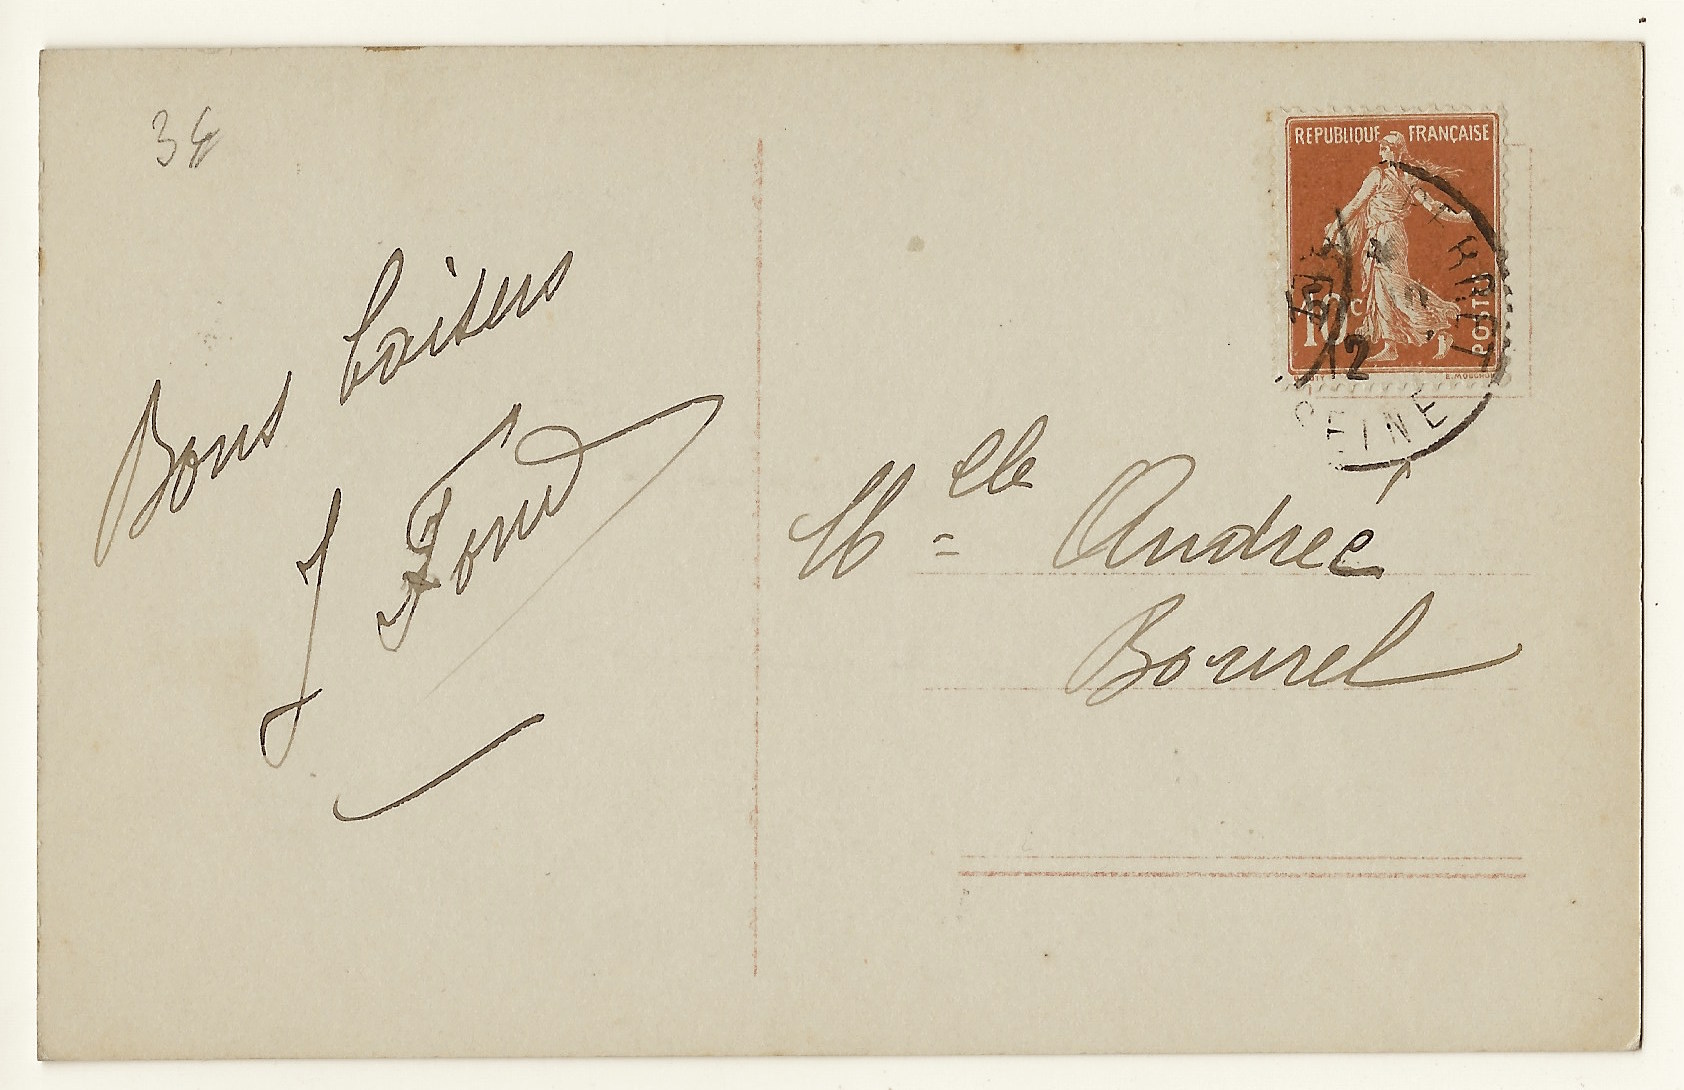 3€
Bons baisers
J Fond
REPUBLIQUE FRANÇAISE
10c
POSTES
12
SEINE
Mlle Andreé
Bourrel